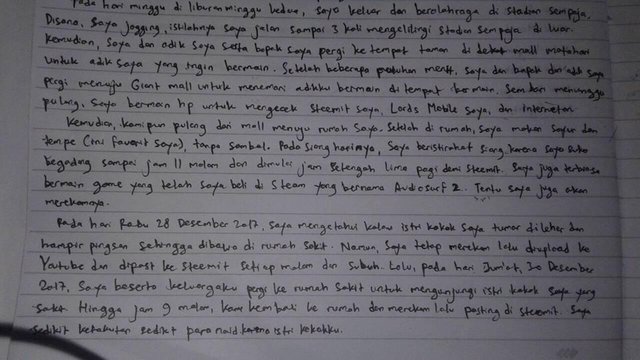 Pada hari minggu di liburan minggu kedua, saya keluar dan berolahraga di stadian sempaja.
Disana, saya jogging, istilahnya saya jalan sampai 3 kali mengelilingi stadian sempaja di luar.
Kemudian, saya dan adik saya serta bapak saya pergi ke tempat taman di dekat mall matahari
untuk adik saya yang ingin bermain. Setelah beberapa puluhan menit, saya dan bapak dan adik saya
pergi menuju Giant mall untuk menemani adikku bermain di tempat bermain. Sembari menunggu
pulang, saya bermain hp untuk mengecek Steemit saya, Lords Mobile saya, dan internetan.
Kemudian, kamipun pulang dari mall menuju rumah saya. Setelah di rumah, saya makan sayur dan
tempe (ini favorit saya) tanpa sambal. Pada siang harinya, saya beristirahat siang karena saya suka
begadang sampai jam 11 malam dan dimulai jam setengah lima pagi demi steemit. Saya juga terbiasa
bermain game yang telah saya beli di Steam yang bernama Audiosurf 2. Tentu saya juga akan
merekamnya.
Pada hari Rabu 28 Desember 2017, saya mengetahui kalau istri kakak saya tumor di leher dan
hampir pingsan sehingga dibawa di rumah sakit. Namun, saya tetap merekam lalu diupload ke
Youtube dan dipost ke steemit setiap malam dan subuh. Lalu, pada hari Jum'at, 30 Desember
2017, saya beserta keluargaku pergi ke rumah sakit untuk mengunjungi istri kakak saya yang
sakit. Hingga jam 9 malam, kami kembali ke rumah dan merekam lalu posting di steemit. Saya
sedikit ketakutan sedikit paranoid karena istri kakakku.